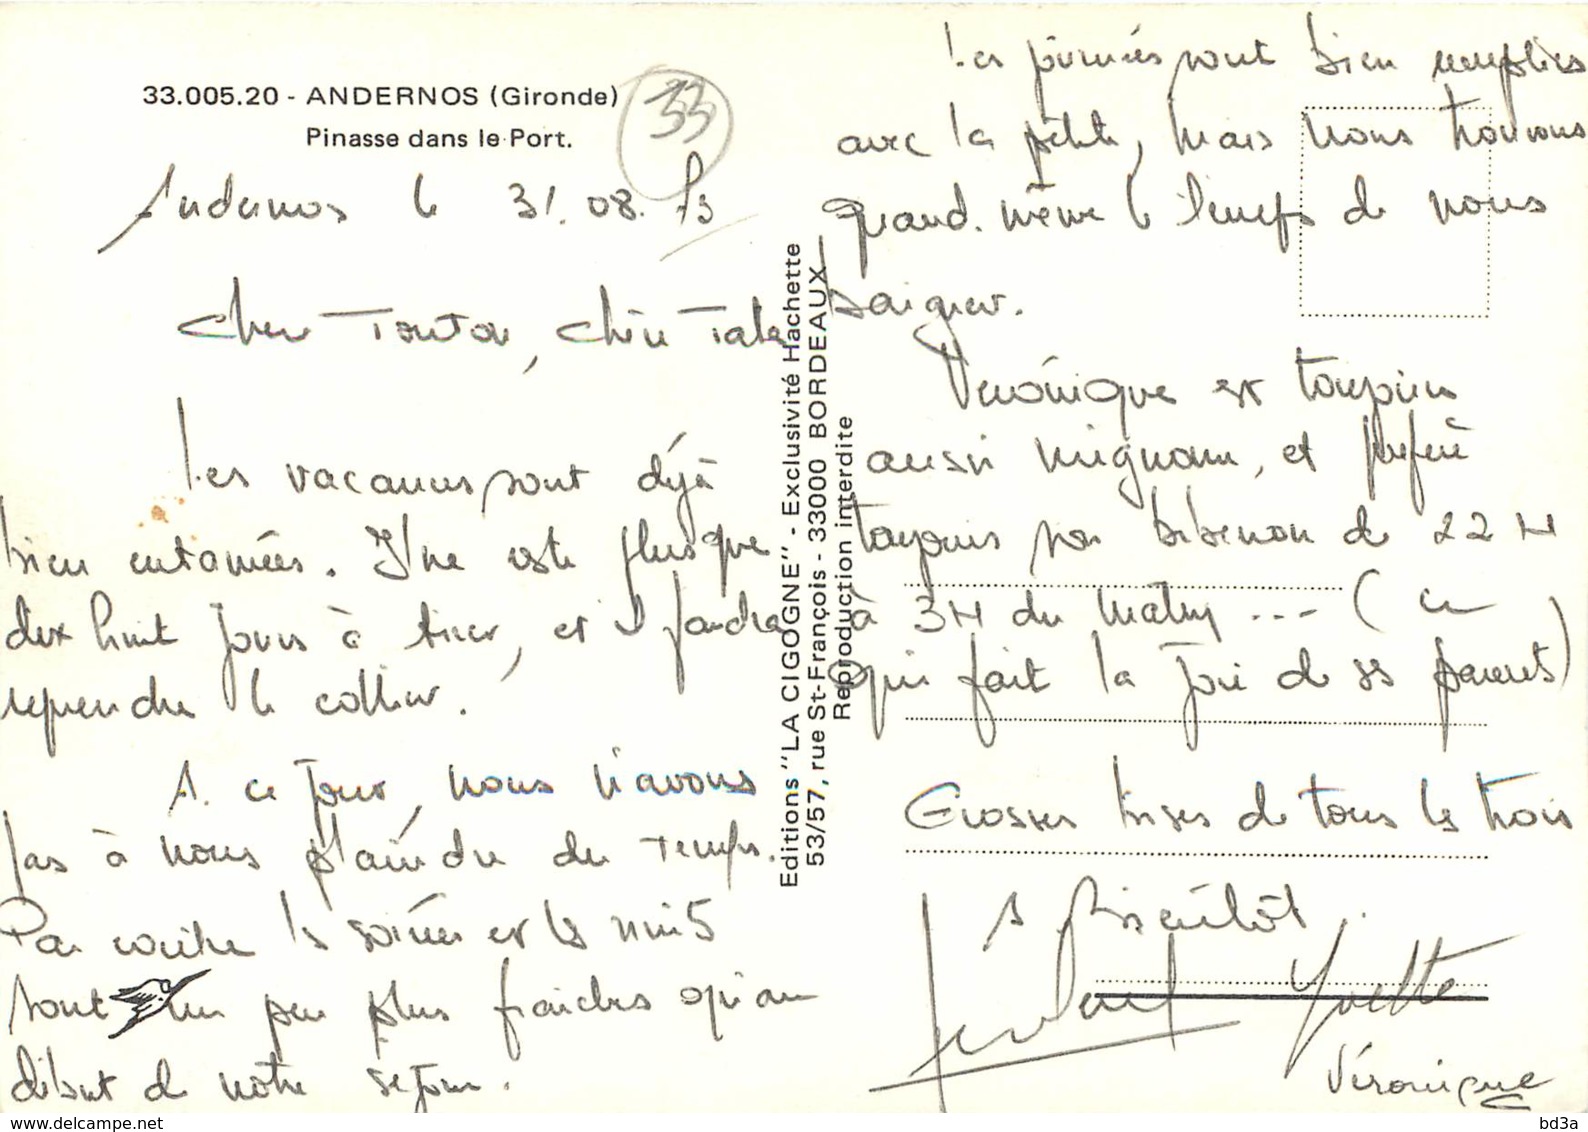 33.005.20 - ANDERNOS (Gironde)
Pinasse dans le Port.
33
Andernos le 31.08.73
Cher Tonton, chère Tata
Les vacances sont déjà
bien entamées. Il ne reste plus que
dix huit jours à tirer, et il faudra
reprendre le collier.
A ce jour, nous n'avons
pas à nous plaindre du temps.
Par contre les soirées et les nuits
sont un peu plus fraiches qu'au
début de notre séjour.
Editions "LA CIGOGNE" - Exclusivité Hachette
53/57, rue St-François - 33000 BORDEAUX
Reproduction interdite
Les journées sont bien remplies
avec la petite, mais nous trouvons
quand même le temps de nous
baigner.
Véronique est toujours
aussi mignonne, et préfère
toujours son biberon de 22 H
à 3H du matin --- (ce
qui fait la joie de ses parents)
Grosses bises de tous les trois
A Bientôt.
Yvette
Véronique
bd3a